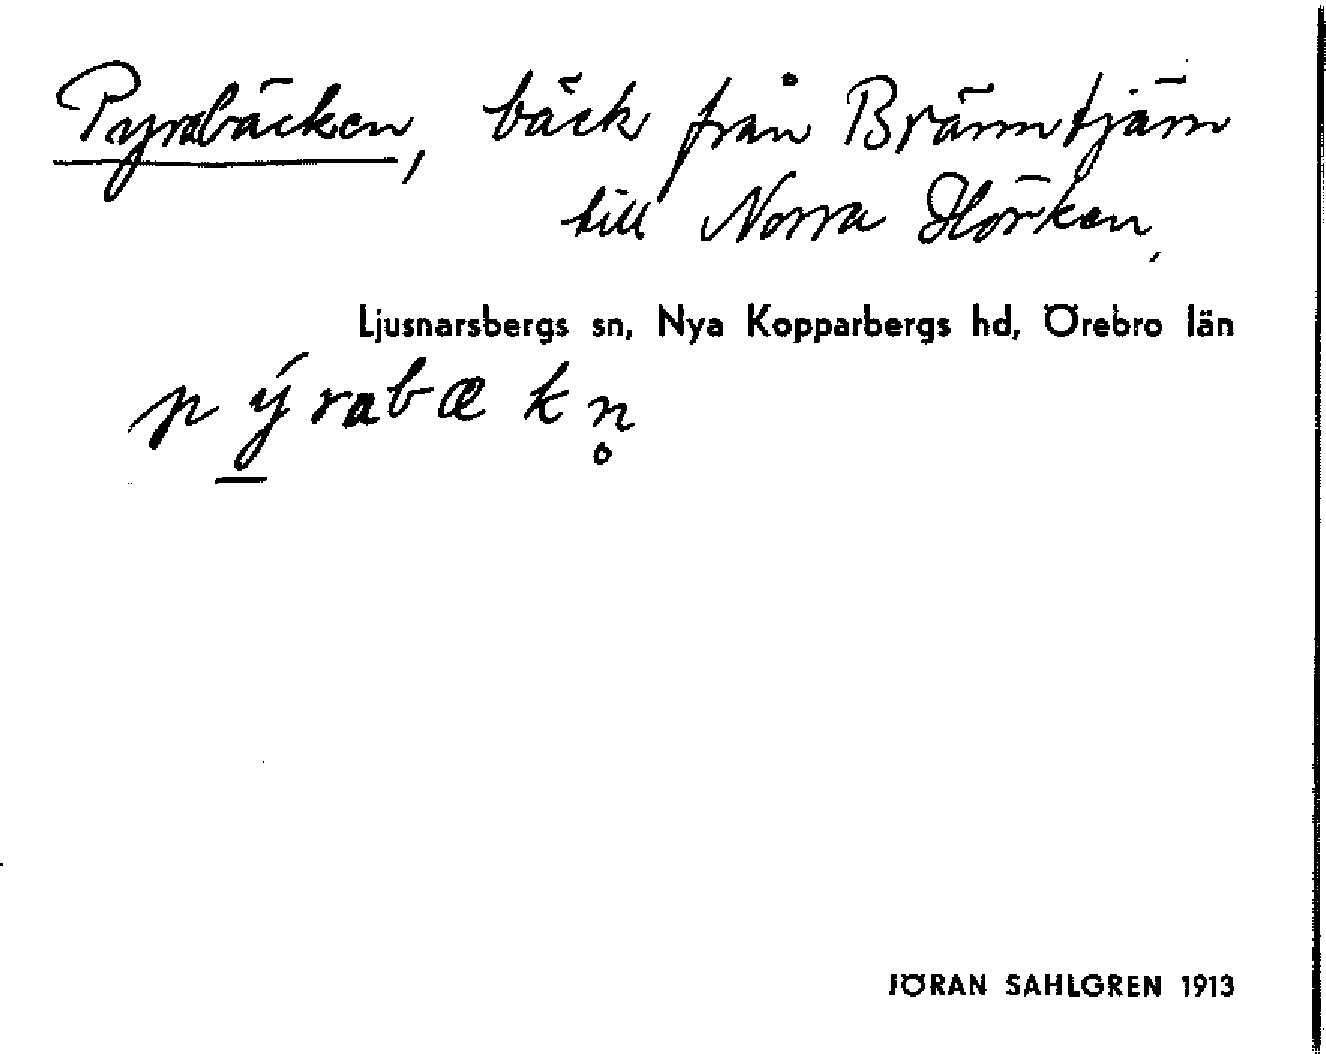 Pyrabäcken, bäck från Bränntjärn
till Norra Hörken,
Ljusnarsbergs sn, Nya Kopparbergs hd, Örebro län
pýrabæ kn̥
JÖRAN SAHLGREN 1913